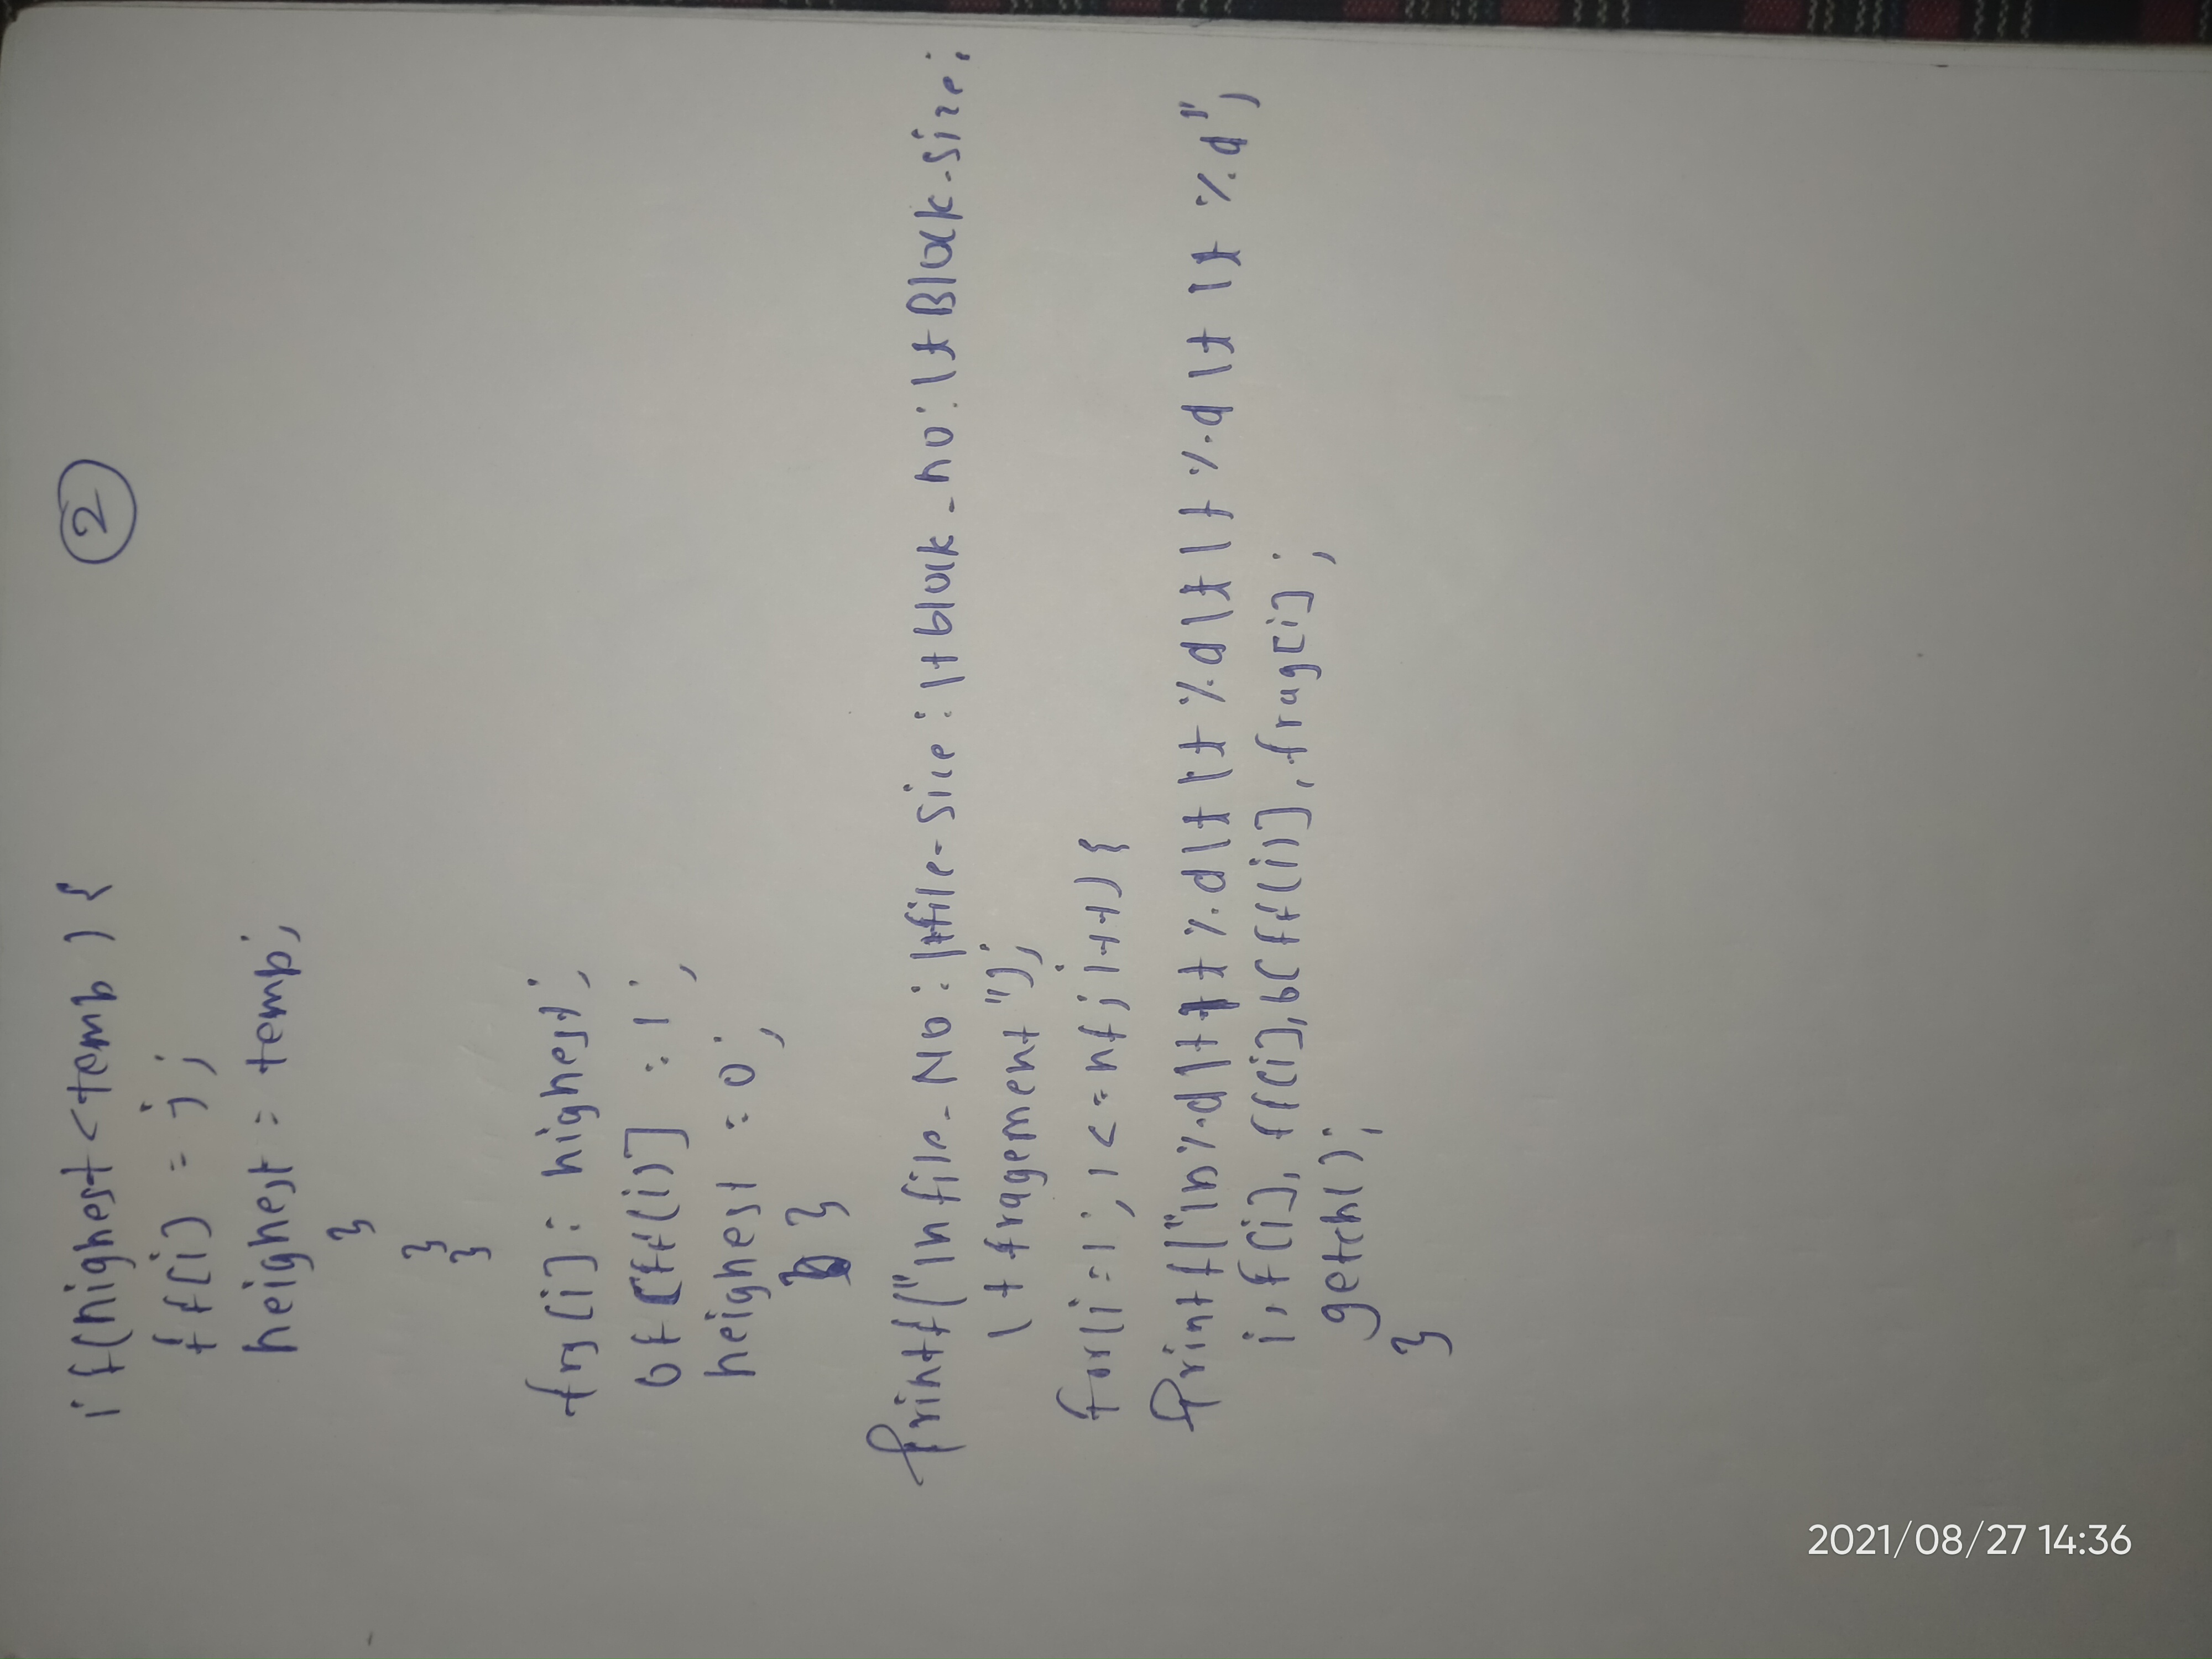 ②
if(highest<temp){
ff[i) = j;
heighest = temp;
}
}
}
frg[i]: highest;
bf[ff(i)] : 1;
heighest : 0;
}
printf("\n file-No:\tfile-size:\t block-no:\t Block-size:
\t fragement");
for(i=1; i<=nf; i++){
Printf("\n%d\t\t %d\t\t %d\t\t %d\t\t %d",
i, f(i], ff[i], b[ff(i)], frag[i];
getch();
}
2021/08/27 14:36